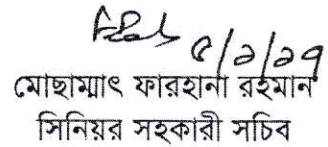 ৫/১/১৭
মোছাম্মাৎ ফারহানা রহমান
সিনিয়র সহকারী সচিব